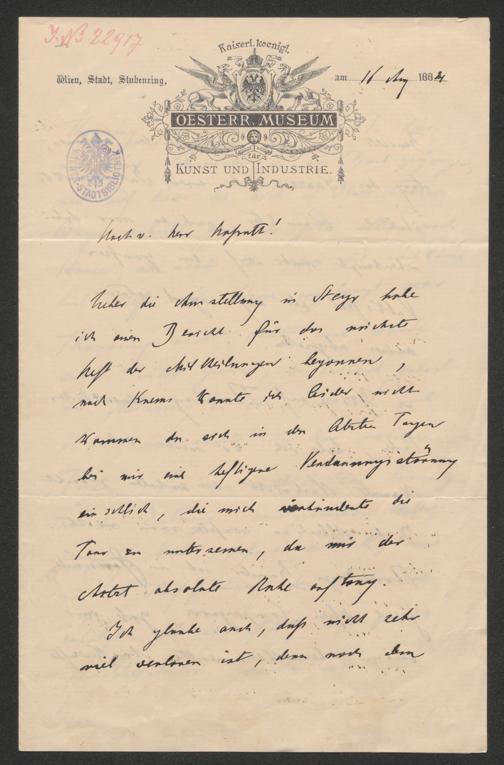 J. N. 22917
Kaiserl. koenigl.
Wien, Stadt, Stubenring.
am 16 Aug 1884
OESTERR. MUSEUM
für
KUNST UND INDUSTRIE.
STADTBIBLIOTHEK
Hoch v. Herr Hofrath!
Ueber die Ausstellung in Steyr habe
ich einen Bericht für das nächste
Heft der Mittheilungen begonnen,
nach Krems konnte ich leider nicht
kommen da sich in den letzten Tagen
bei mir eine heftigere Verdauungsstörung
einschlich, die mich verhinderte die
Tour zu unternemen, da mir der
Arzt absolute Ruhe auftrug.
Ich glaube auch, daß nicht sehr
viel verloren ist, denn nach dem